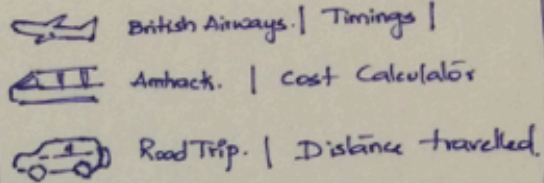 British Airways. | Timings |
Amhack. | Cost Calculator
Road Trip. | Distance travelled.